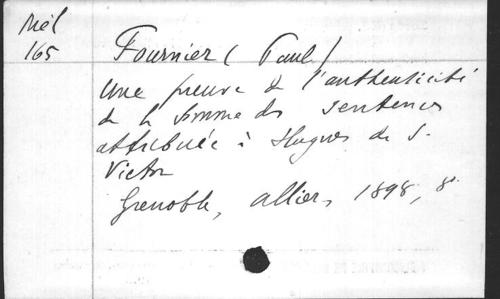 Mél
165
Fournier (Paul)
Une preuve de l'authenticité
de la somme des sentences
attribuée à Hugues de S.
Victor
Grenoble, Allier, 1898, 8°